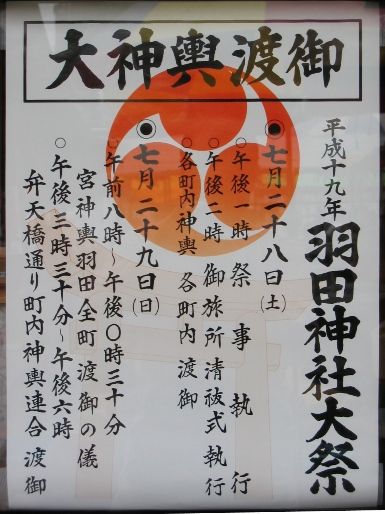 大神輿渡御
平成十九年 羽田神社大祭
◉七月二十八日（土）
○午後一時 祭事執行
○午後二時 御旅所清祓式執行
○各町内神輿 各町内渡御
◉七月二十九日（日）
○午前八時〜午後〇時三十分
宮神輿羽田全町渡御の儀
○午後三時三十分〜午後六時
弁天橋通り町内神輿連合渡御